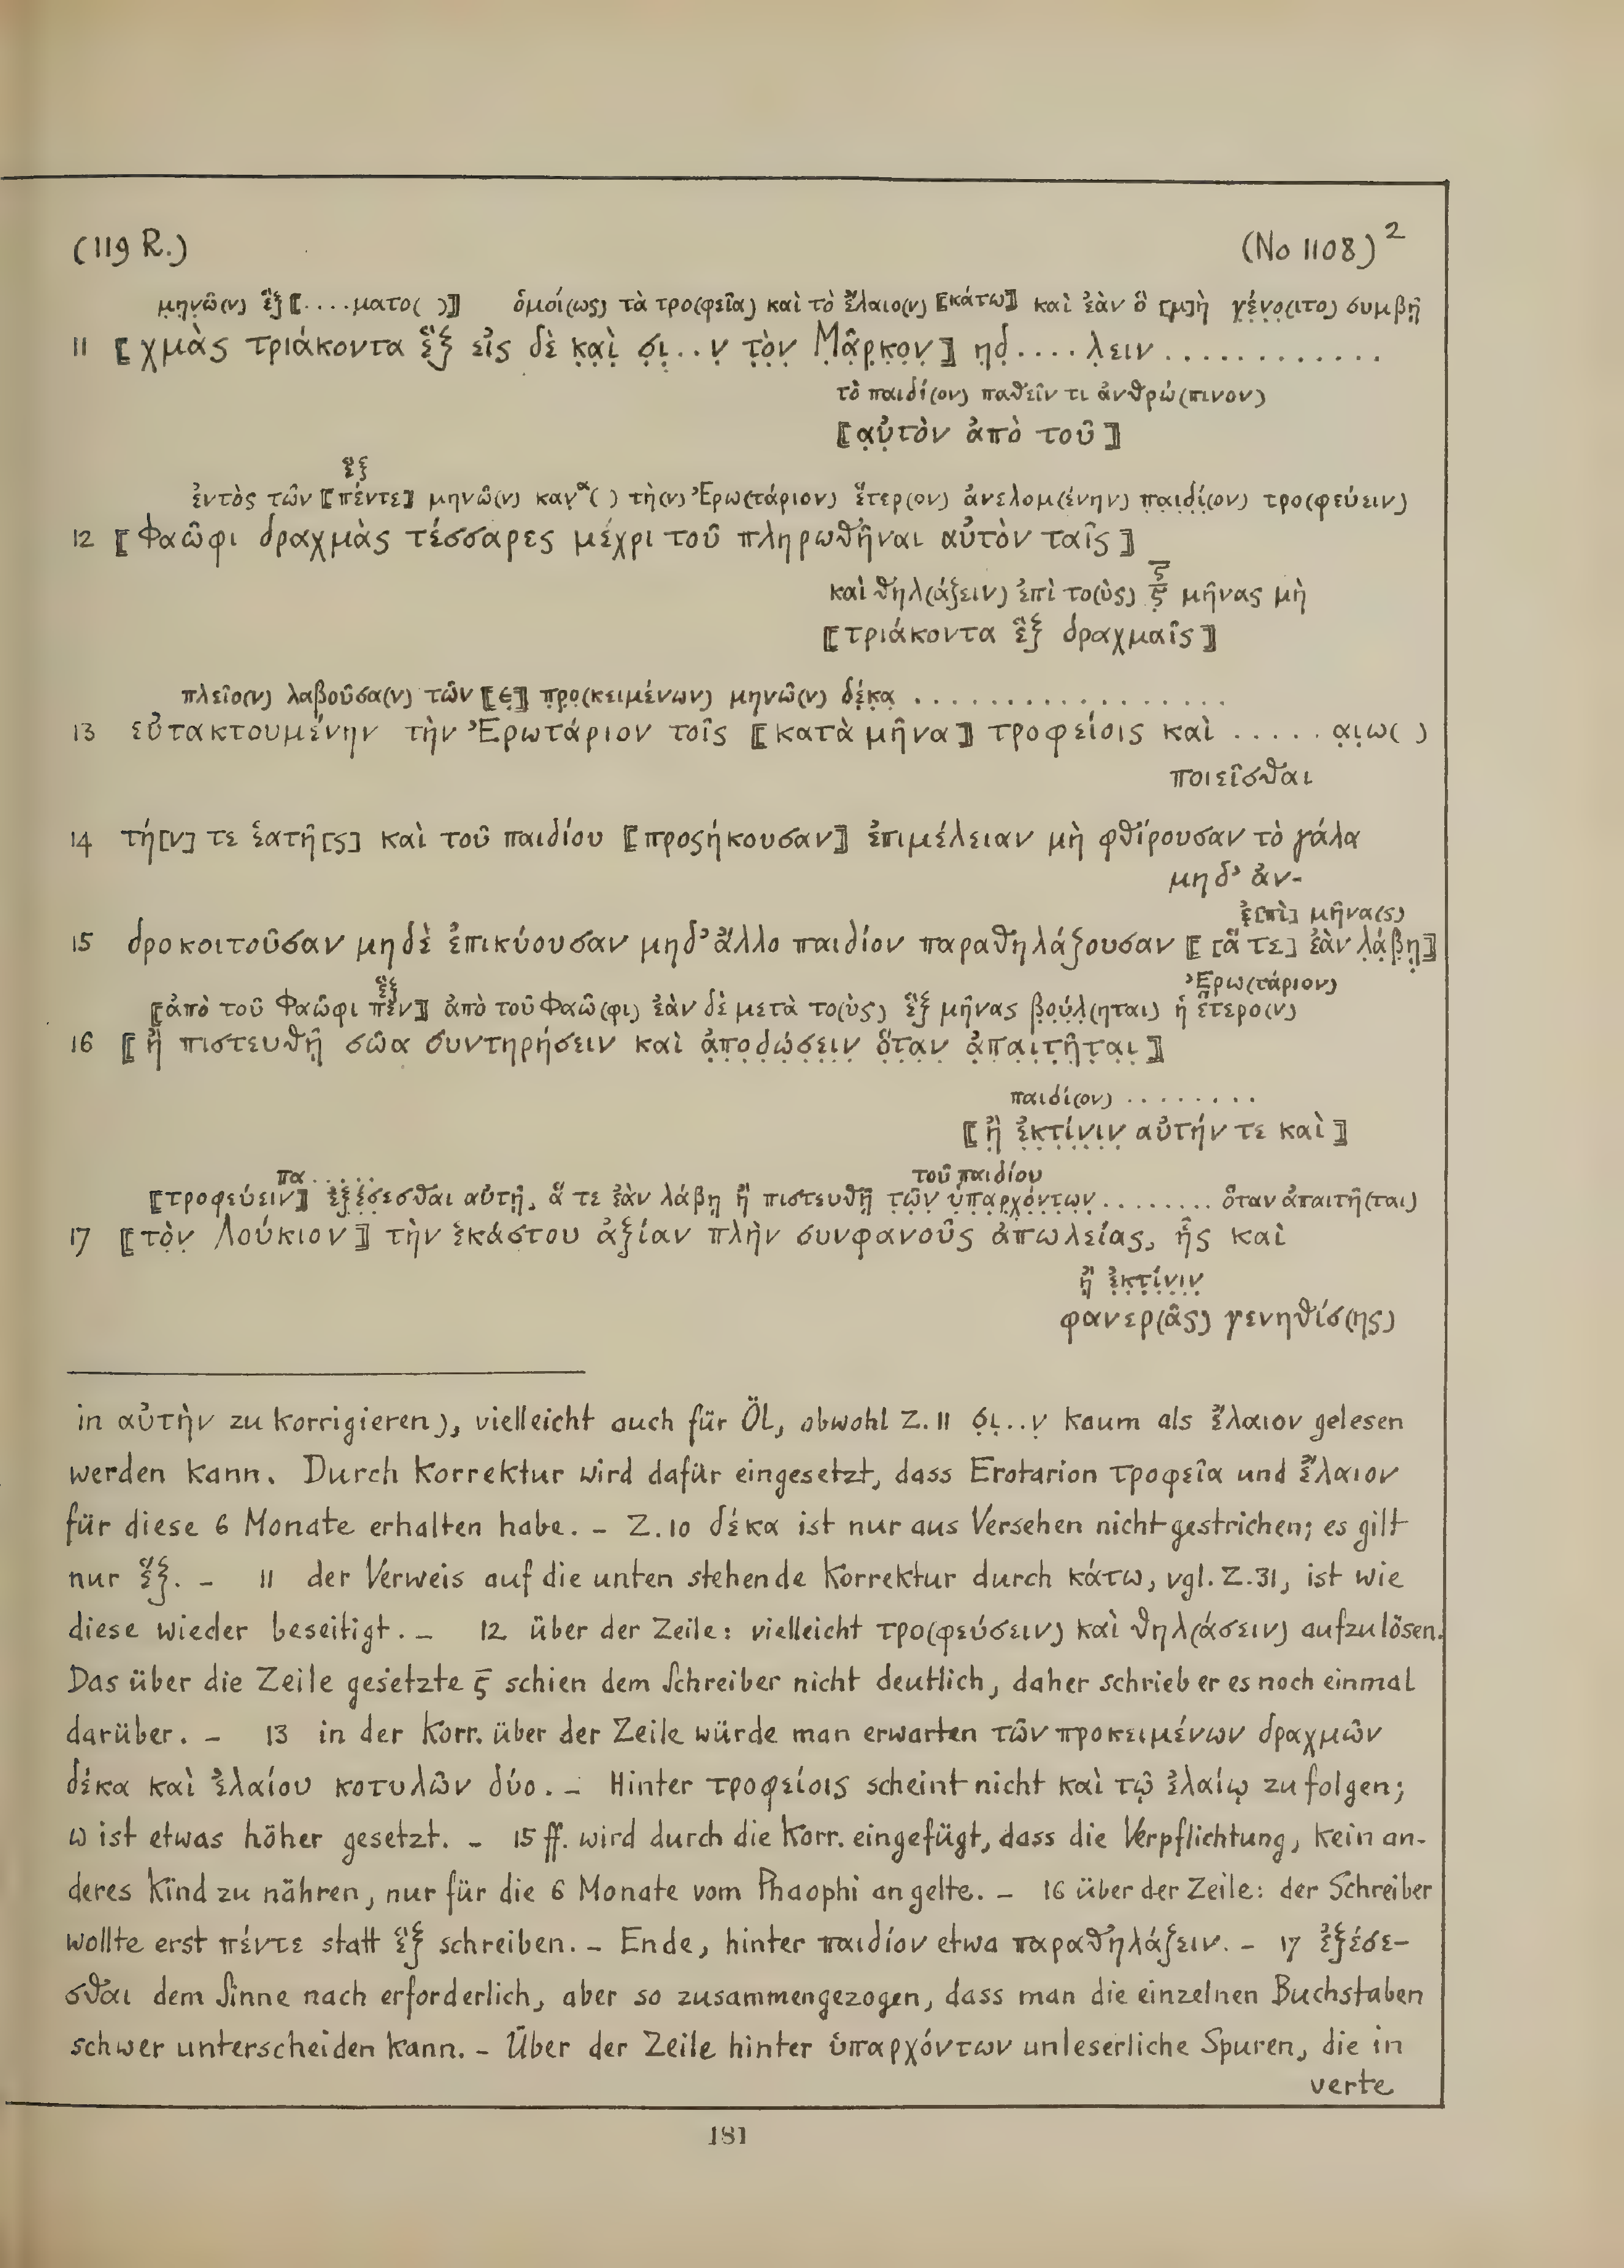 (119 R.) (No 1108)²
μ̣η̣ν̣ῶ(ν) ἓξ ⟦....ματο( )⟧ ὁμοί(ως) τὰ τρο(φεῖα) καὶ τὸ ἔλαιο(ν) ⟦κάτω⟧ καὶ ἐὰν ὃ [μ]ὴ γ̣έ̣ν̣ο̣(ιτο) συμβῇ
11 ⟦χμὰς τριάκοντα ἓξ εἰς δὲ κ̣α̣ὶ̣ σ̣ι̣..ν̣ τ̣ὸ̣ν̣ Μ̣ᾶ̣ρ̣κ̣ο̣ν̣⟧ η̣δ̣....λ̣ειν............
τὸ παιδί(ον) παθεῖν τι ἀνθρώ(πινον)
⟦α̣ὐ̣τὸν ἀπὸ τοῦ⟧
ἓξ
ἐντὸς τῶν ⟦πέντε⟧ μηνῶ(ν) καν̣ᵅ( ) τὴ(ν) Ἐρω(τάριον) ἕτερ(ον) ἀνελομ(ένην) π̣α̣ι̣δ̣ί̣(ον) τρο(φεύειν)
12 ⟦Φαῶφι δραχμὰς τέσσαρες μέχρι τοῦ πληρωθῆναι αὐτὸν ταῖς⟧
ϛ̅
καὶ θηλ(άζειν) ἐπὶ το(ὺς) ϛ̅ μῆνας μὴ
⟦τριάκοντα ἓξ δραχμαῖς⟧
πλεῖο(ν) λαβοῦσα(ν) τῶν ⟦ε̣⟧ π̣ρ̣ο̣(κειμένων) μηνῶ(ν) δ̣έ̣κ̣α̣ .................
13 εὐτακτουμένην τὴν Ἐρωτάριον τοῖς ⟦κατὰ μῆνα⟧ τροφείοις καὶ ..... α̣ι̣ω( )
ποιεῖσθαι
14 τή[ν] τε ἑατῆ[ς] καὶ τοῦ παιδίου ⟦προςήκουσαν⟧ ἐπιμέλειαν μὴ φθίρουσαν τὸ γάλα
μηδ’ ἀν-
ἐ[πὶ] μῆνα(ς)
15 δροκοιτοῦσαν μηδὲ ἐπικύουσαν μηδ’ ἄλλο παιδίον παραθηλάζουσαν ⟦[ἅ τε] ἐὰν λ̣ά̣β̣ῃ̣⟧
ἓξ Ἐρω(τάριον)
⟦ἀπὸ τοῦ Φαῶφι πέν⟧ ἀπὸ τοῦ Φαῶ(φι) ἐὰν δὲ μετὰ το(ὺς) ἓξ μῆνας β̣ο̣ύ̣λ̣(ηται) ἡ ἕτερο(ν)
16 ⟦ἢ πιστευθῇ σῶα συντηρήσειν καὶ ἀ̣π̣ο̣δ̣ώ̣σ̣ε̣ι̣ν̣ ὅ̣τ̣α̣ν̣ ἀ̣π̣α̣ι̣τ̣ῆ̣τ̣α̣ι̣⟧
παιδί(ον) ........
⟦ἢ̣ ἐ̣κ̣τ̣ί̣ν̣ι̣ν̣ αὐτήν τε καὶ⟧
πα...... τοῦ παιδίου
⟦τροφεύειν⟧ ἐ̣ξ̣έ̣σ̣εσθαι αὐτῇ, ἅ τε ἐὰν λάβῃ ἢ πιστευθῇ τ̣ῶ̣ν̣ ὑ̣π̣α̣ρ̣χ̣ό̣ν̣τ̣ω̣ν̣........ ὅταν ἀπαιτῆ(ται)
17 ⟦τ̣ὸ̣ν̣ Λούκιον⟧ τὴν ἑκάστου ἀξίαν πλὴν συνφανοῦς ἀπωλείας, ἧς καὶ
ἢ̣ ἐ̣κ̣τ̣ί̣ν̣ι̣ν̣
φανερ(ᾶς) γενηθίσ(ης)
in αὐτὴν zu korrigieren), vielleicht auch für Öl, obwohl Z.11 σ̣ι̣..ν̣ kaum als ἔλαιον gelesen
werden kann. Durch Korrektur wird dafür eingesetzt, dass Erotarion τροφεῖα und ἔλαιον
für diese 6 Monate erhalten habe. – Z.10 δέκα ist nur aus Versehen nicht gestrichen; es gilt
nur ἕξ. – 11 der Verweis auf die unten stehende Korrektur durch κάτω, vgl. Z.31, ist wie
diese wieder beseitigt. – 12 über der Zeile: vielleicht τρο(φεύσειν) καὶ θηλ(άσειν) aufzulösen.
Das über die Zeile gesetzte ϛ̅ schien dem Schreiber nicht deutlich, daher schrieb er es noch einmal
darüber. – 13 in der Korr. über der Zeile würde man erwarten τῶν προκειμένων δραχμῶν
δέκα καὶ ἐλαίου κοτυλῶν δύο. – Hinter τροφείοις scheint nicht καὶ τῷ ἐλαίῳ zu folgen;
ω ist etwas höher gesetzt. – 15 ff. wird durch die Korr. eingefügt, dass die Verpflichtung, kein an-
deres Kind zu nähren, nur für die 6 Monate vom Phaophi an gelte. – 16 über der Zeile: der Schreiber
wollte erst πέντε statt ἓξ schreiben. – Ende, hinter παιδίον etwa παραθηλάζειν. – 17 ἐξέσε-
σθαι dem Sinne nach erforderlich, aber so zusammengezogen, dass man die einzelnen Buchstaben
schwer unterscheiden kann. – Über der Zeile hinter ὑπαρχόντων unleserliche Spuren, die in
verte
181